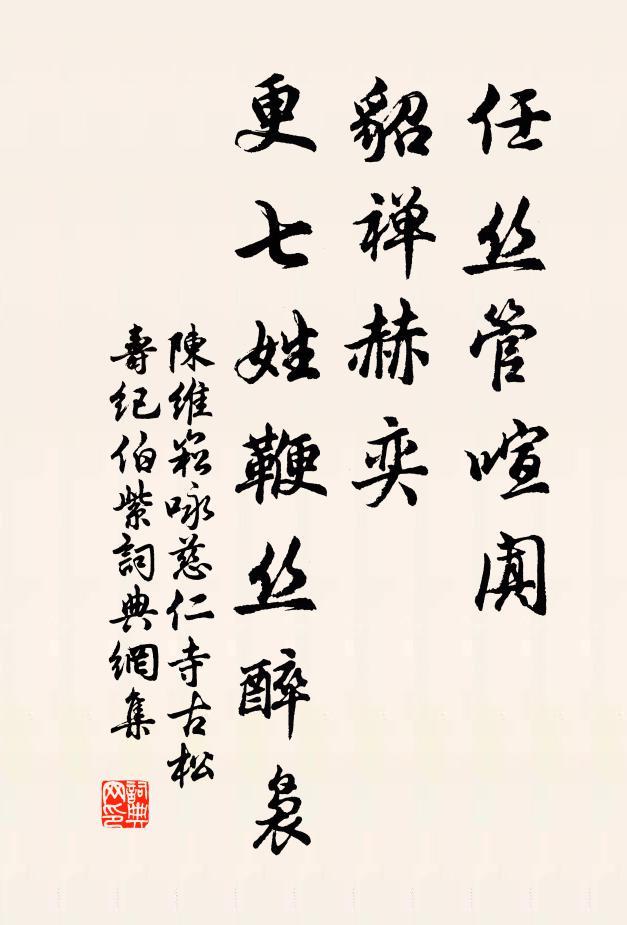 任丝管喧阗
貂禅赫奕
更七姓鞭丝醉袅
陳維崧咏慈仁寺古松
壽紀伯紫詞典網集
詞典
网印